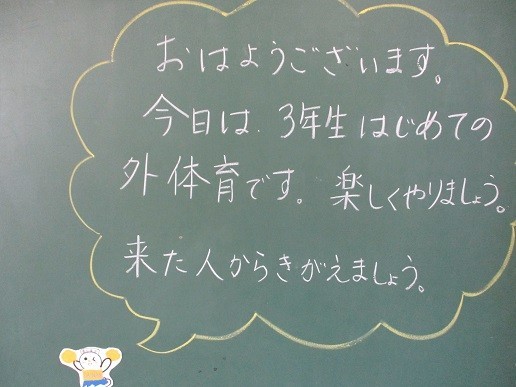 おはようございます。
今日は、3年生はじめての
外体育です。楽しくやりましょう。
来た人からきがえましょう。